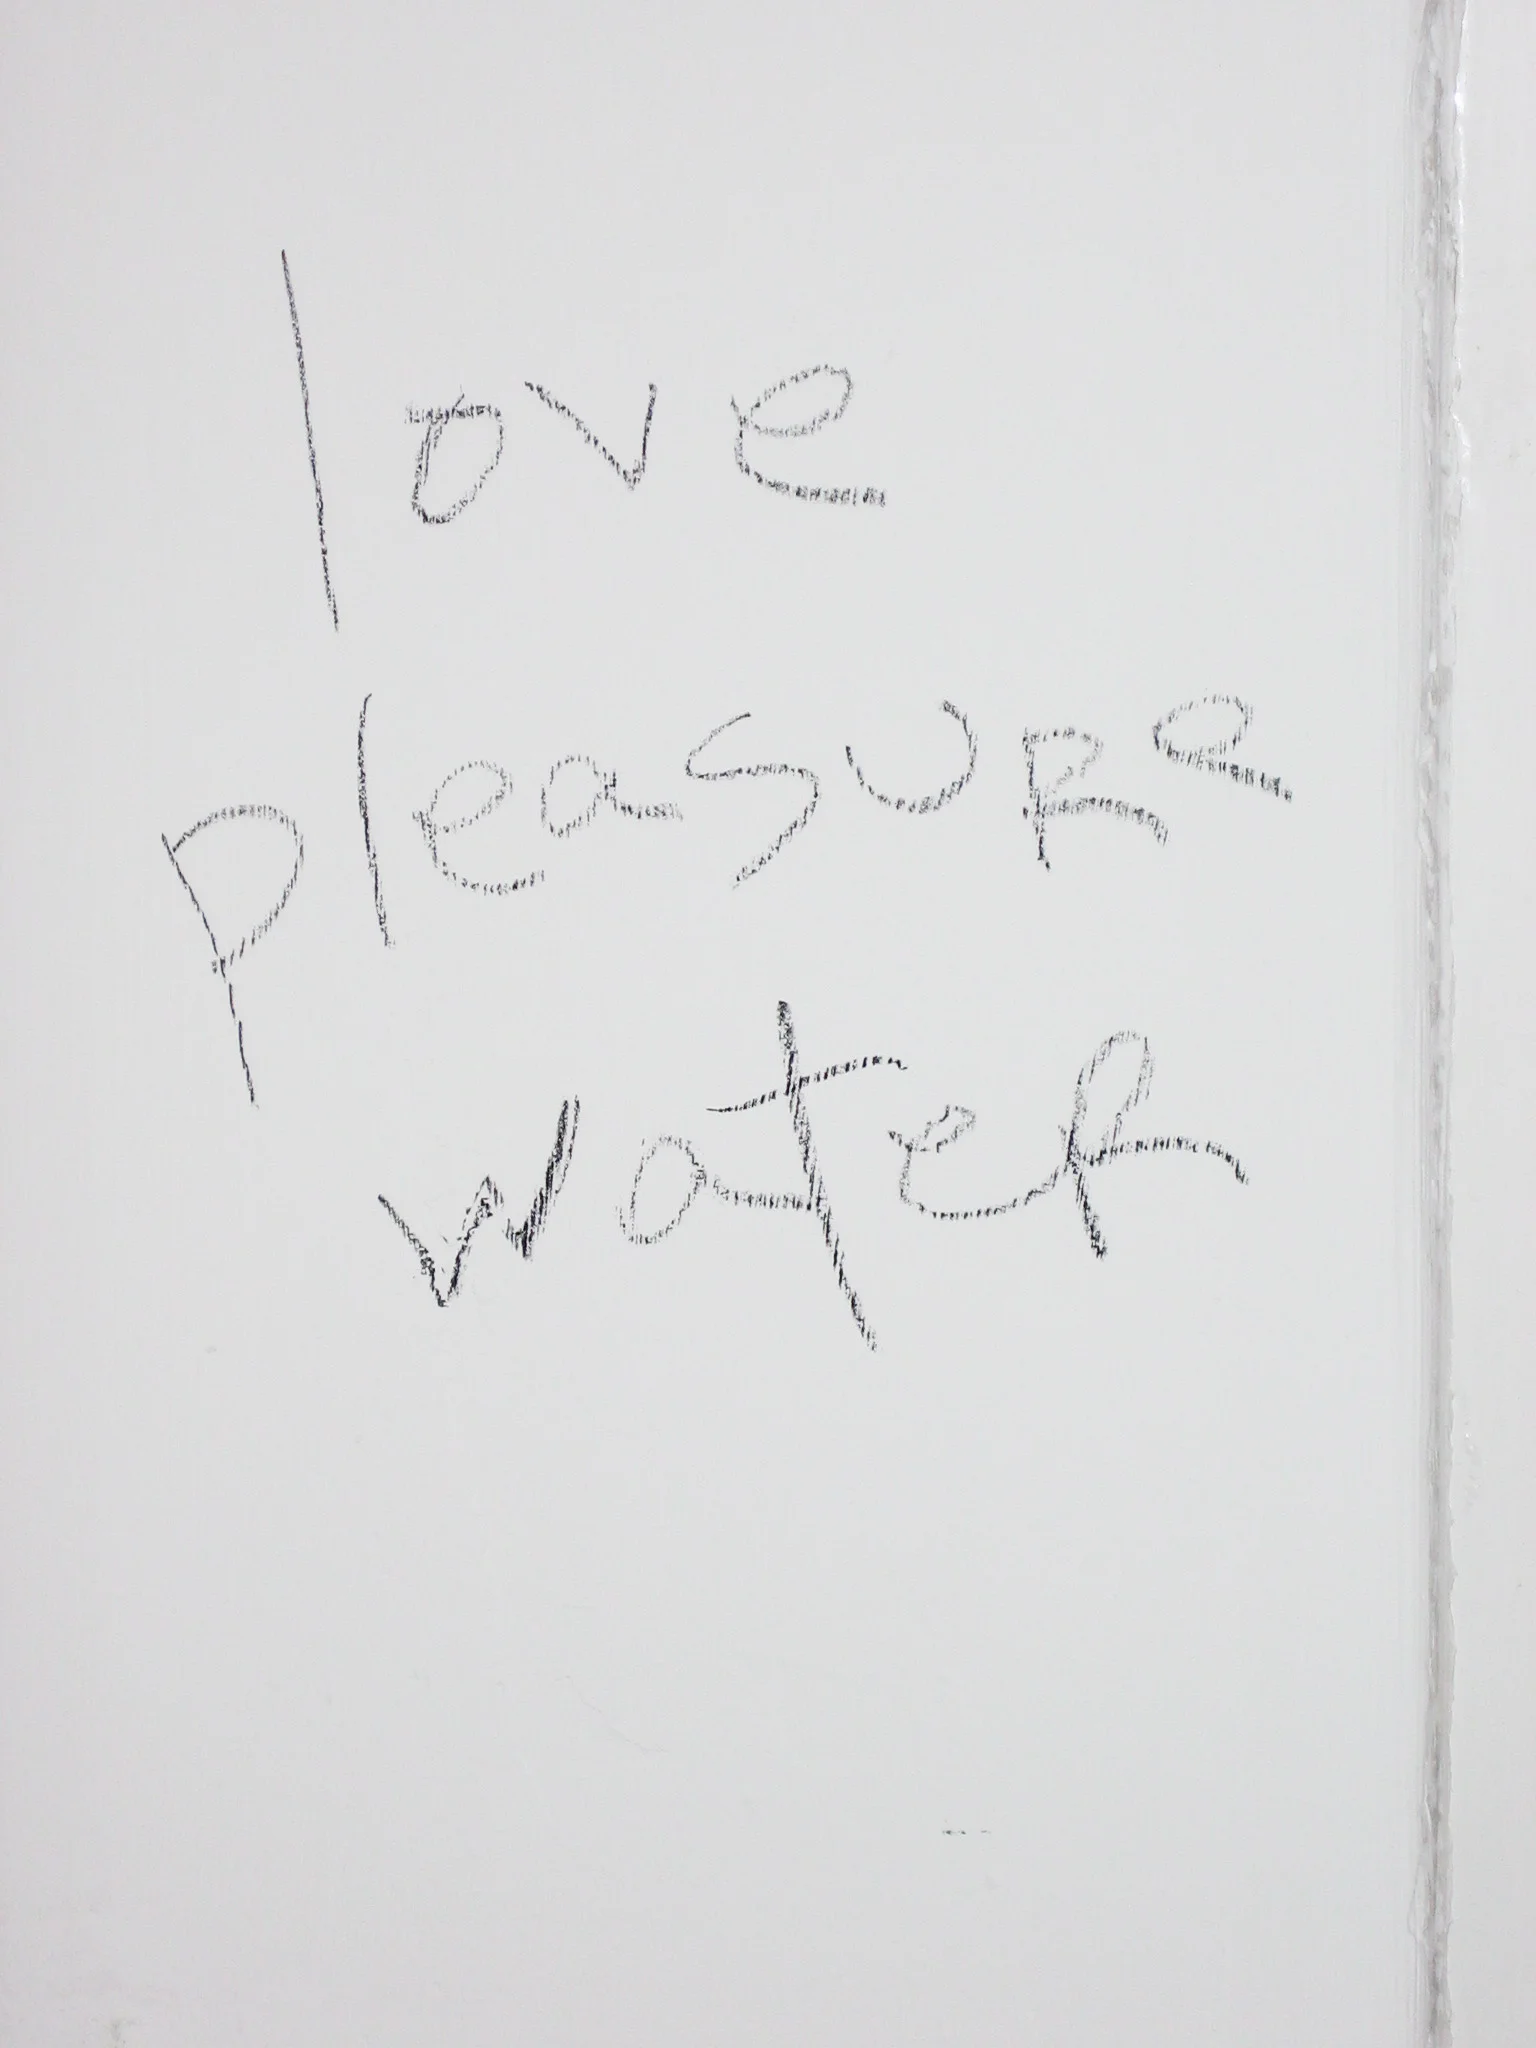 love
pleasure
water